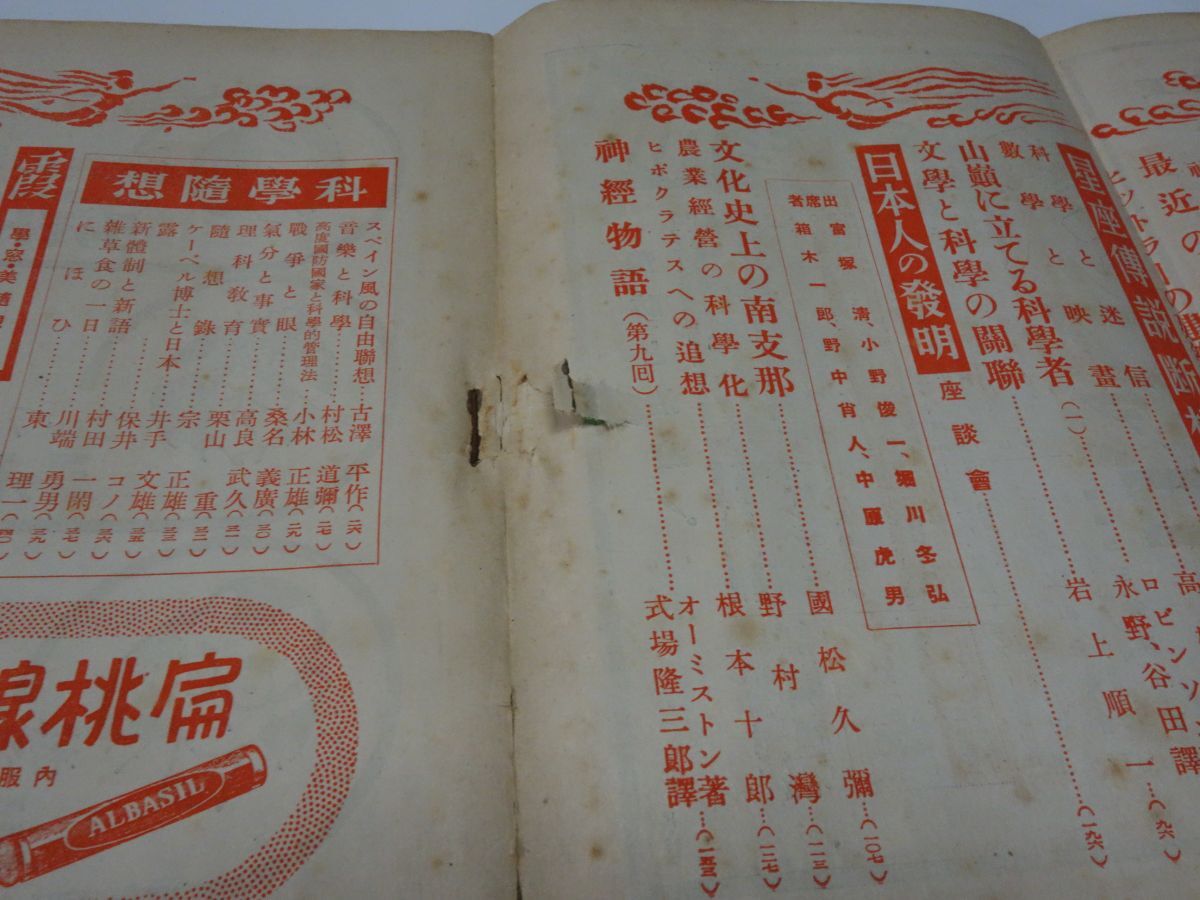 最近の
ヒットラーの
星座傳說
科學と迷信
數學と映畫
永野、谷田譯
山巓に立てる科學者(一)……岩上順一(一九六)
文學と科學の關聯……國松久彌(一〇七)
日本人の發明
座談會
出席者
富塚淸、小野俊一、堀川冬弘
箱木一郎、野中肖人、中原虎男
文化史上の南支那……野村灣(一一三)
農業經營の科學化……根本十郎(一二七)
ヒポクラテスへの追想……オーミストン著
神經物語(第九回)……式場隆三郎譯(一五三)
科學隨想
スペイン風の自由聯想……古澤平作(二六)
音樂と科學……村松道彌(二七)
高度國防國家と科學的管理法……小林正雄(二九)
戰爭と眼……桑名義廣(三〇)
氣分と事實……高良武久(三一)
理科敎育……栗山重(三二)
隨想錄……宗正雄(三三)
ケーベル博士と日本……井手文雄(三五)
露……保井コノ(三六)
新體制と新語……村田一閑(三七)
雜草食の一日……川端勇男(三九)
にほひ……東理一(四〇)
霞
學・窓・美
扁桃腺
內服
ALBASIL